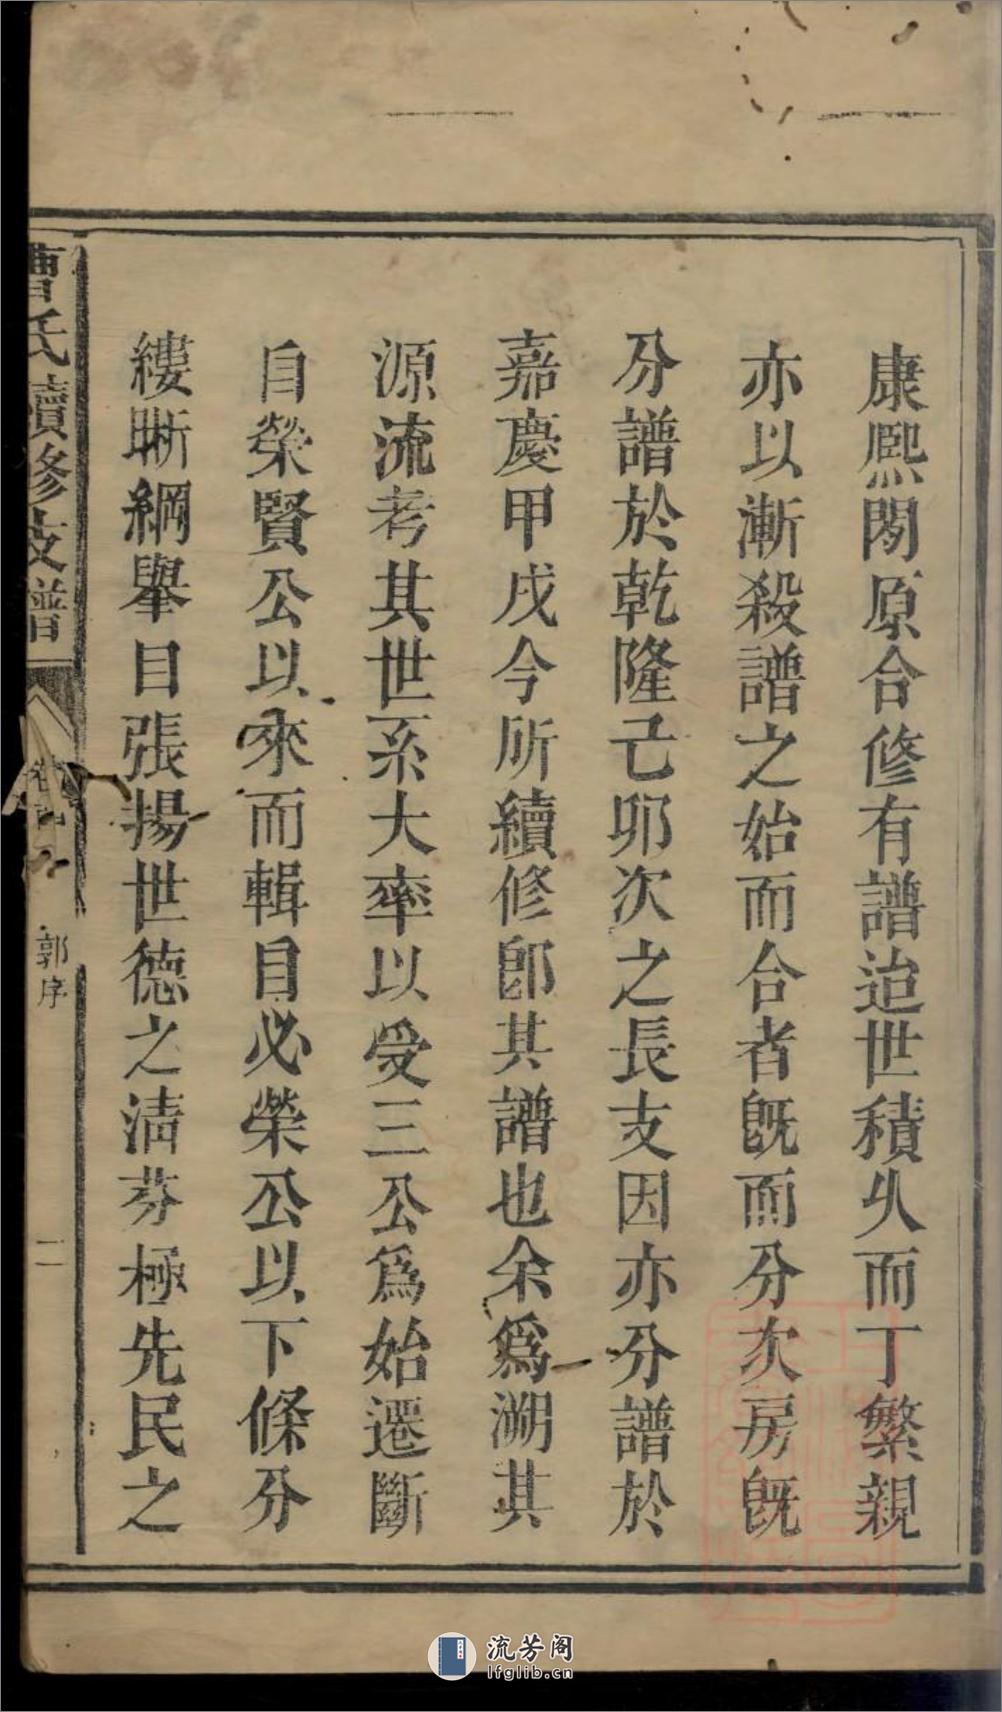 康熙閲原合修有譜迨世積久而丁繁親
亦以漸殺譜之始而合者旣而分次房旣
分譜於乾隆己卯次之長支因亦分譜於
嘉慶甲戌今所續修卽其譜也余爲溯其
源流考其世系大率以受三公爲始遷斷
自榮賢公以來而輯目必榮公以下條分
縷晰綱舉目張揚世德之清芬極先民之
曹氏續修支譜
郭序
二
流芳阁
lfglib.cn